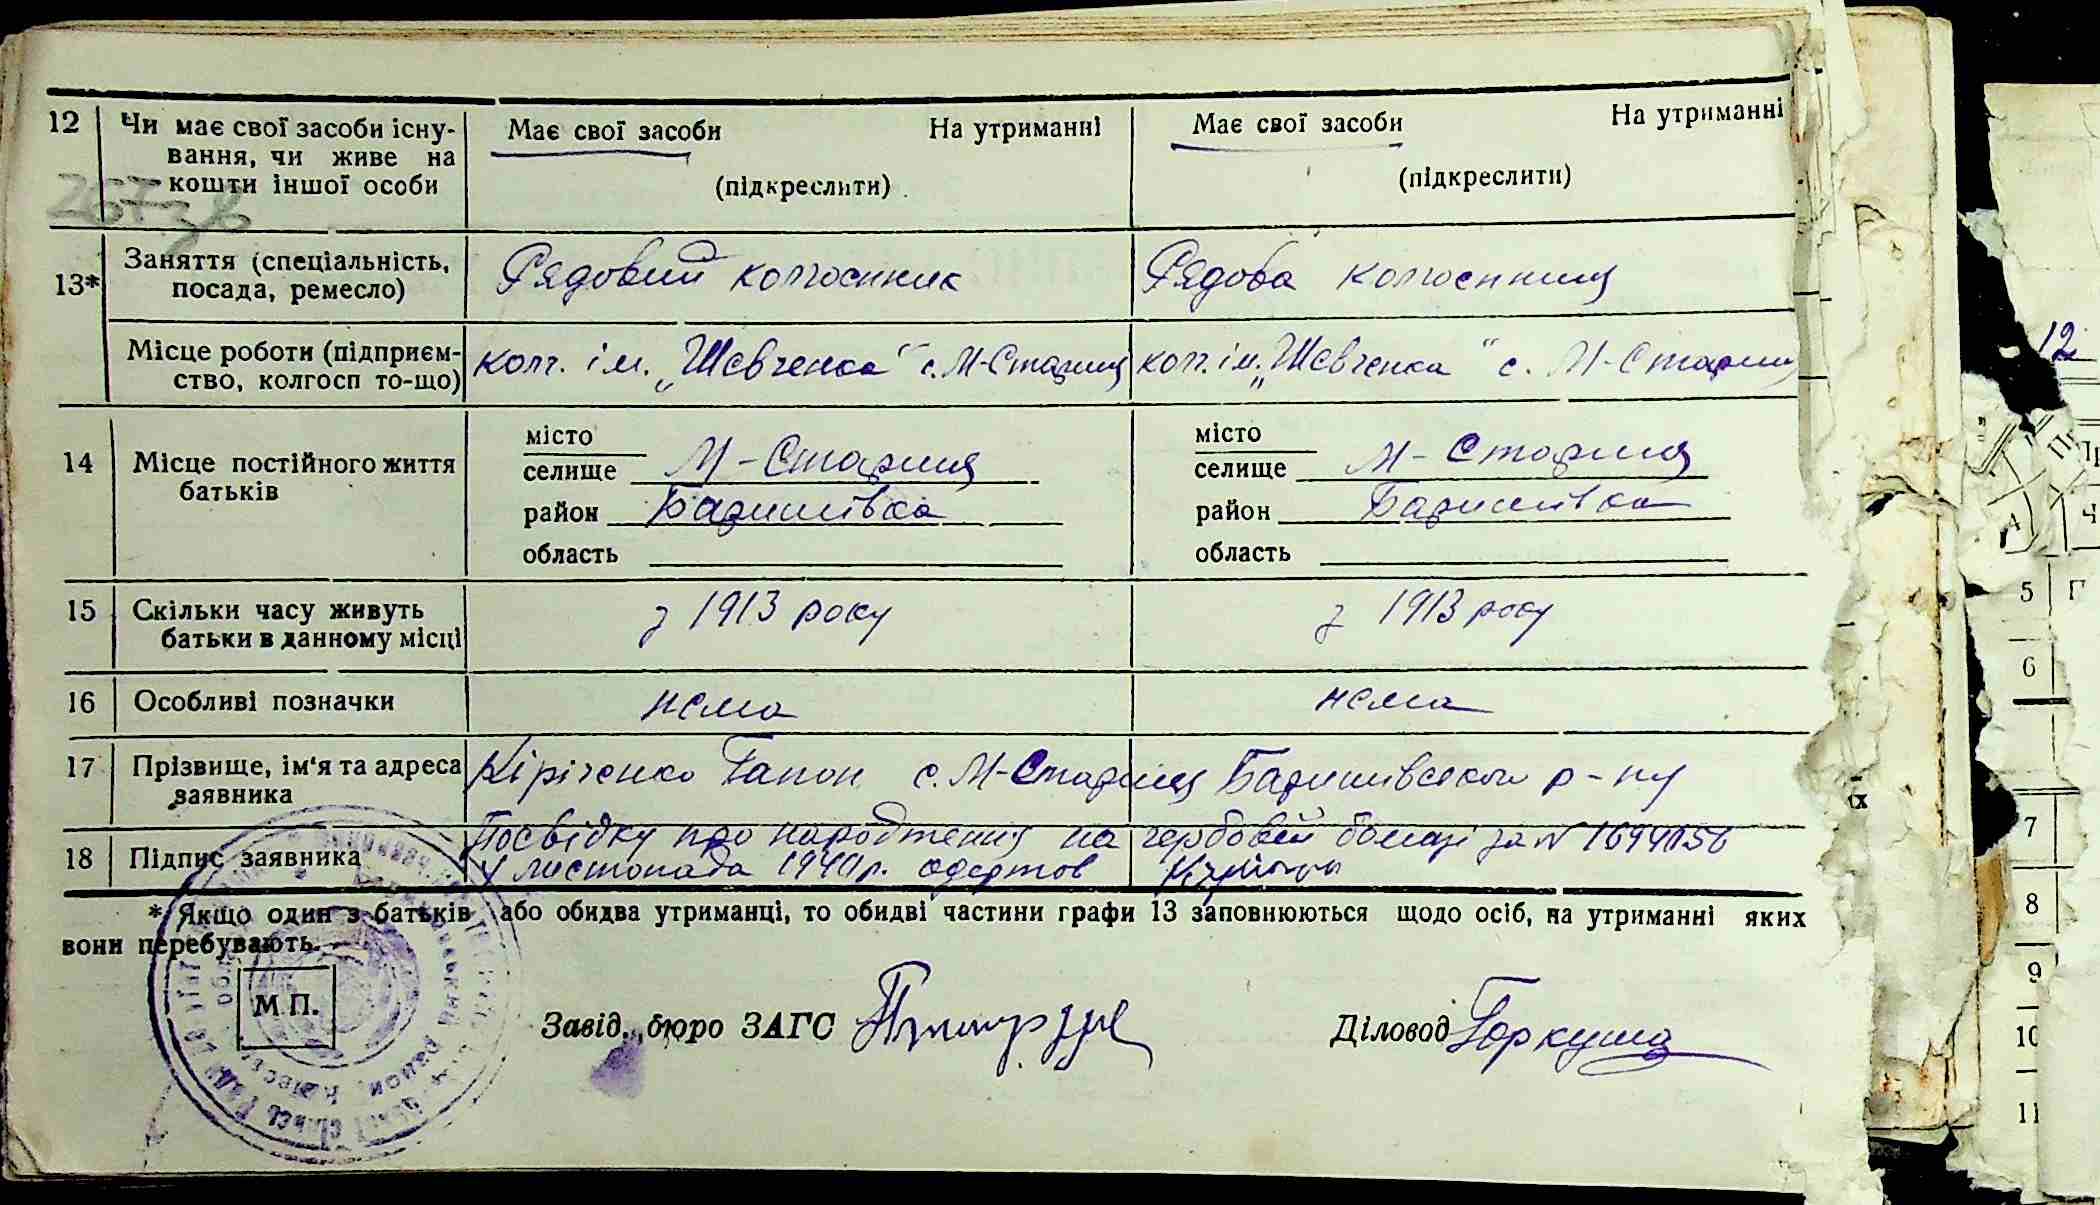 12 Чи має свої засоби існу- Має свої засоби На утриманні Має свої засоби На утриманні
вання, чи живе на
кошти іншої особи (підкреслити) (підкреслити)
267зв
13* Заняття (спеціальність, посада, ремесло) Рядовий колгоспник Рядова колгоспниця
Місце роботи (підприєм- колг. ім. „Шевченка" с. М-Стариця колг. ім. „Шевченка" с. М-Стариця
ство, колгосп то-що)
місто місто
14 Місце постійного життя селище М-Стариця селище М-Стариця
батьків район Баришівка район Баришівка
область область
15 Скільки часу живуть з 1913 року з 1913 року
батьки в данному місці
16 Особливі позначки нема нема
17 Прізвище, ім'я та адреса Кіріченко Гапон с. М-Стариця Баришівського р-ну
заявника
Посвідку про народження на гербовій бомазі за N
18 Підпис заявника 4 листопада 1940 р. одержав
* Якщо один з батьків або обидва утриманці, то обидві частини графи 13 заповнюються щодо осіб, на утриманні яких
вони перебувають.
М П.
Завід. бюро ЗАГС Діловод Гаркуша
12
5
6
7
8
9
10
11